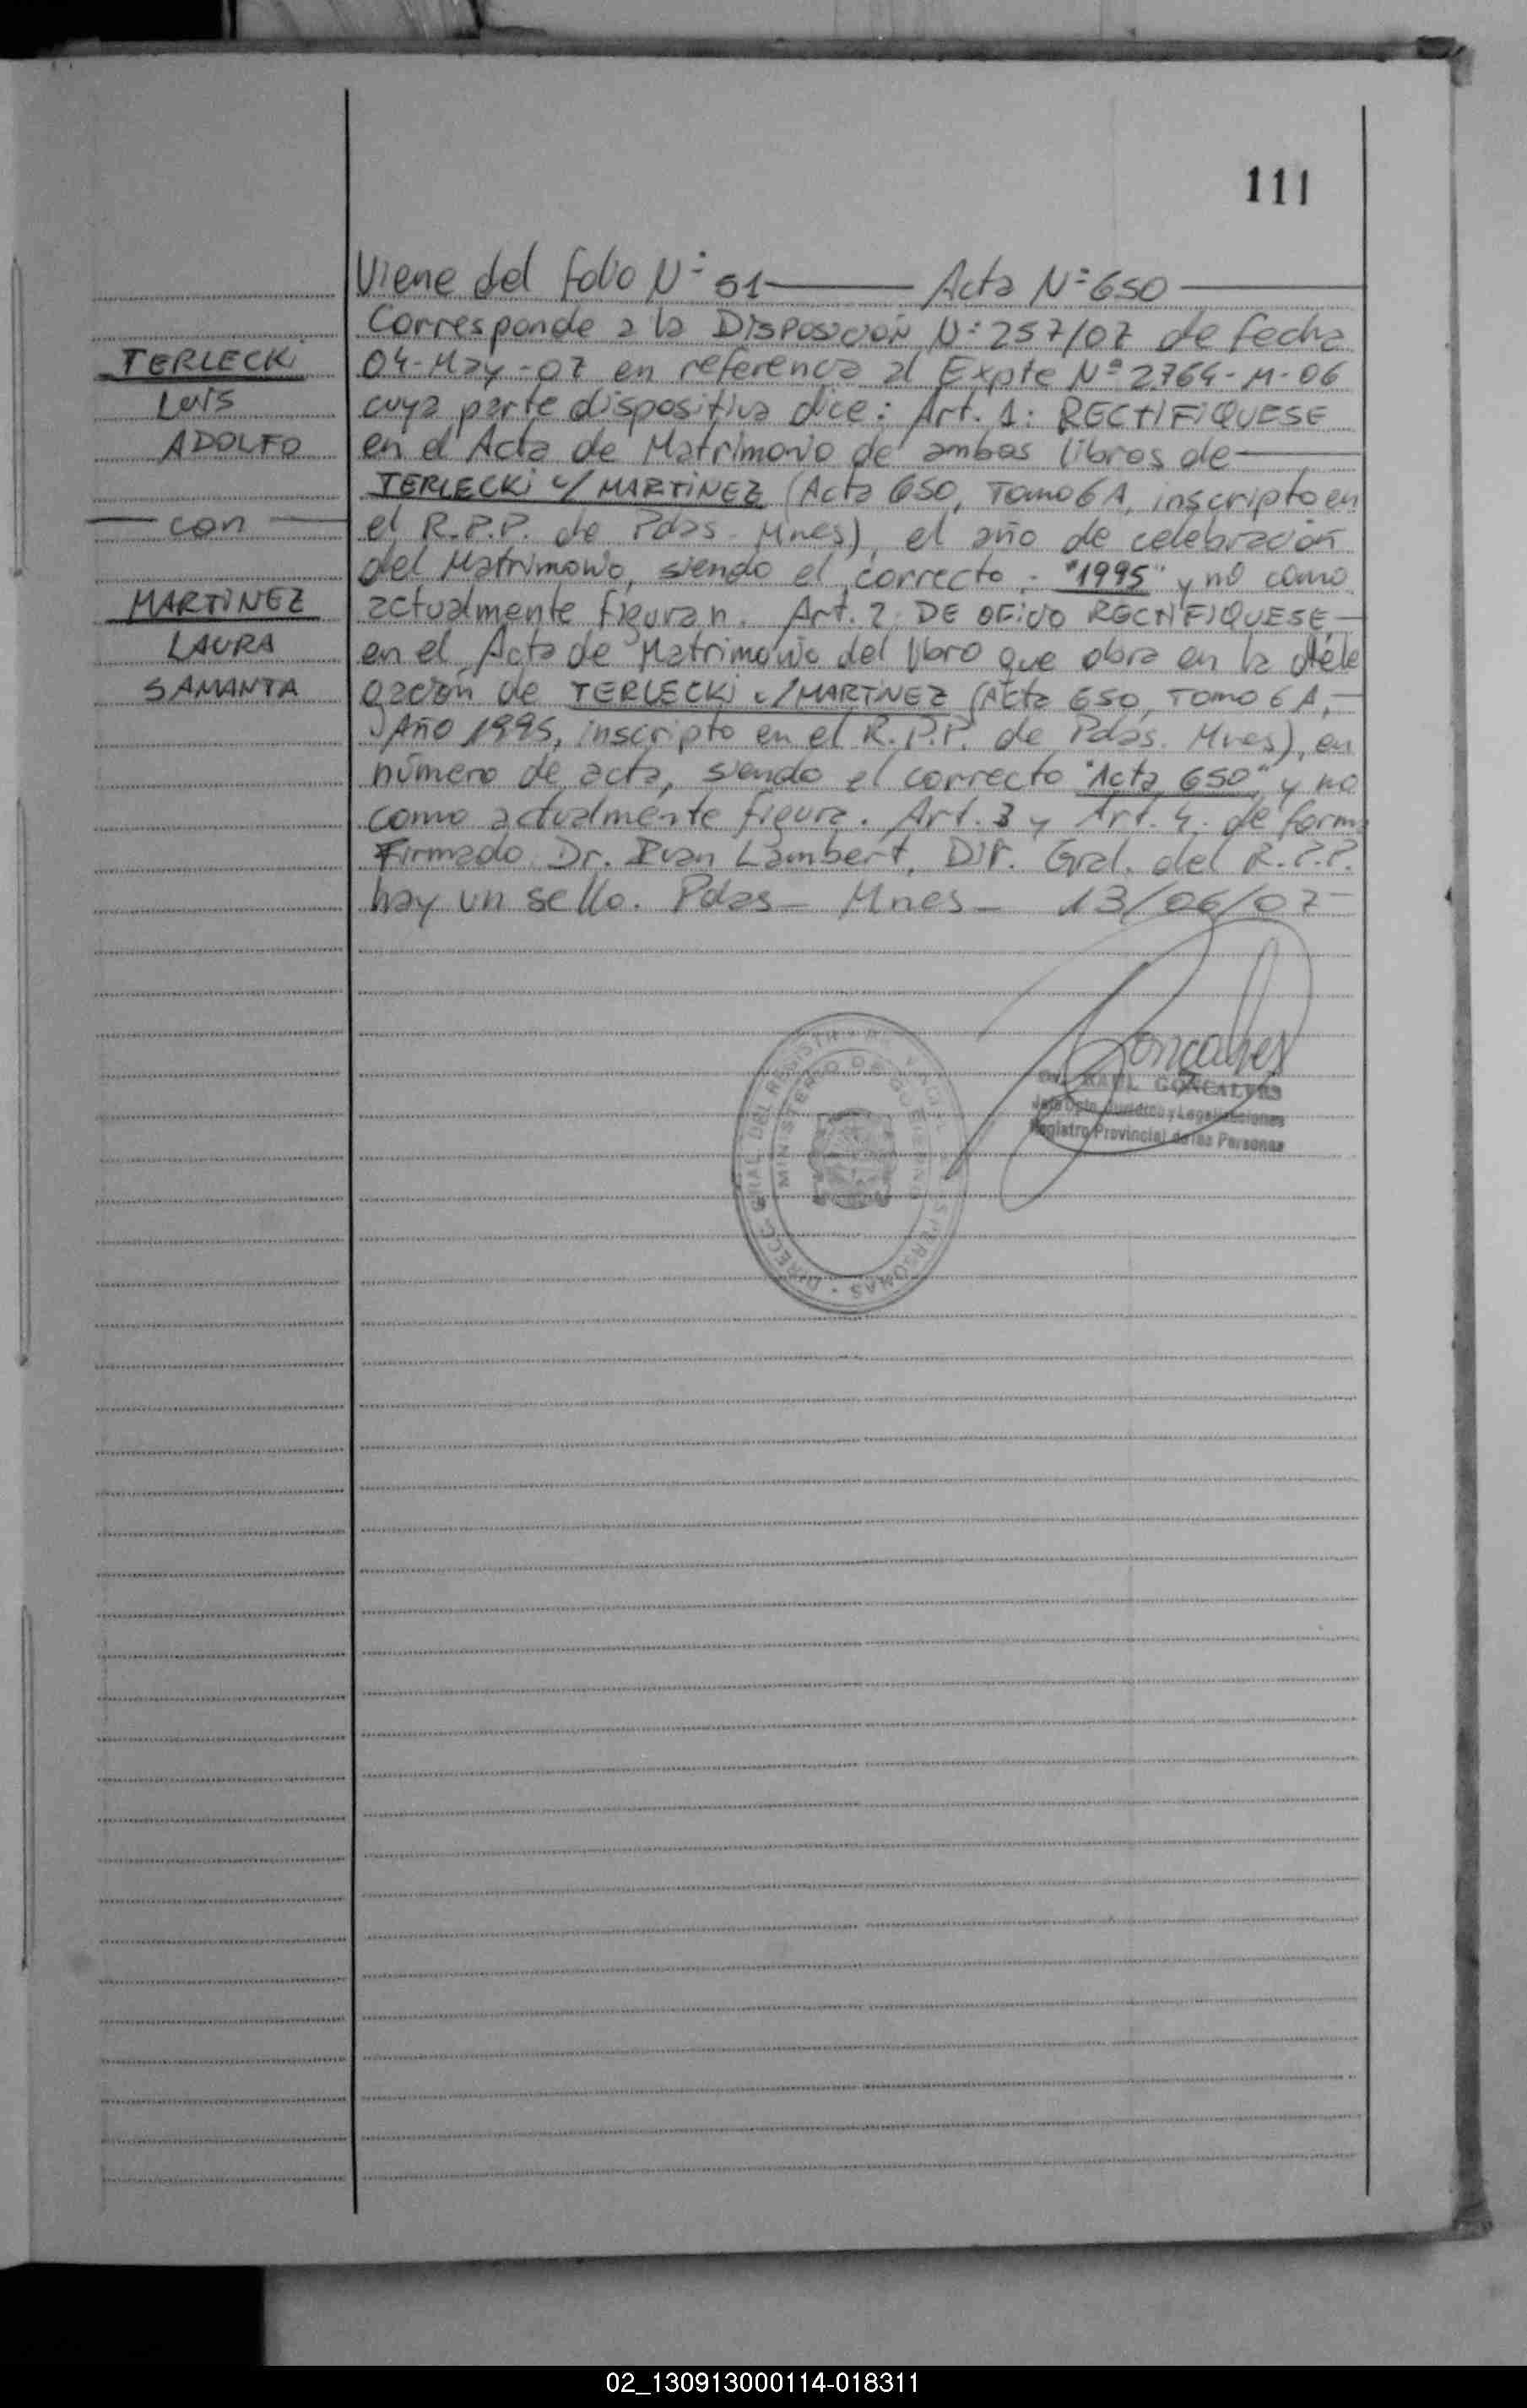 111
Viene del folio Nº 51 Acta Nº 650
Corresponde a la Disposición Nº 257/07 de fecha
TERLECKi
04-May-07 en referencia al Expte Nº 2764-M-06
Luis
cuya parte dispositiva dice: Art. 1: RECTIFIQUESE
ADOLFO
en el Acta de Matrimonio de ambos libros de
TERLECKi c/ MARTiNEZ (Acta 650, Tomo 6A, inscripto en
con
el R.P.P. de Pdas - Mnes), el año de celebración
del Matrimonio, siendo el correcto: "1995" y no como
MARTiNEZ
actualmente figuran. Art. 2: DE OFiCiO RECTIFIQUESE
LAURA
en el Acta de Matrimonio del libro que obra en la dele
SAMANTA
gación de TERLECKi c/ MARTiNEZ (Acta 650, Tomo 6A,
Año 1995, inscripto en el R.P.P. de Pdas. Mnes), en
número de acta, siendo el correcto "Acta 650", y no
como actualmente figura. Art. 3 y Art. 4: de forma
Firmado Dr. Ivan Lambert, Dir. Gral. del R.P.P.
hay un sello. Pdas - Mnes - 13/06/07
Goncalves
RAUL GONCALVES
Jefe Dpto. Jurídico y Legalizaciones
Registro Provincial de las Personas
DIRECC. GRAL. DEL REGISTRO PERSONAS
MINISTERIO DE GOBIERNO
02_130913000114-018311